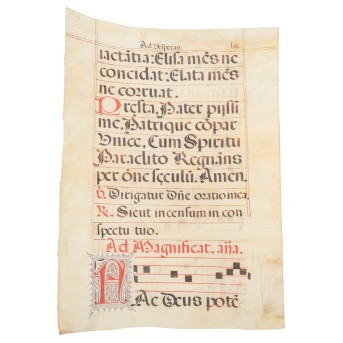 Ad Vesperas.
iactãtia: Elisa mẽs ne
concidat: Elata mẽs
ne corruat.
Presta, Pater pijssi
me, Patrique cõpar
Vnice, Cum Spiritu
Paraclito Regnans
per õne sęculũ. Amen.
Dirigatur Dñe oratio mea.
Sicut incensum in con
spectu tuo.
Ad Magnificat. aña.
Ac Deus potẽ